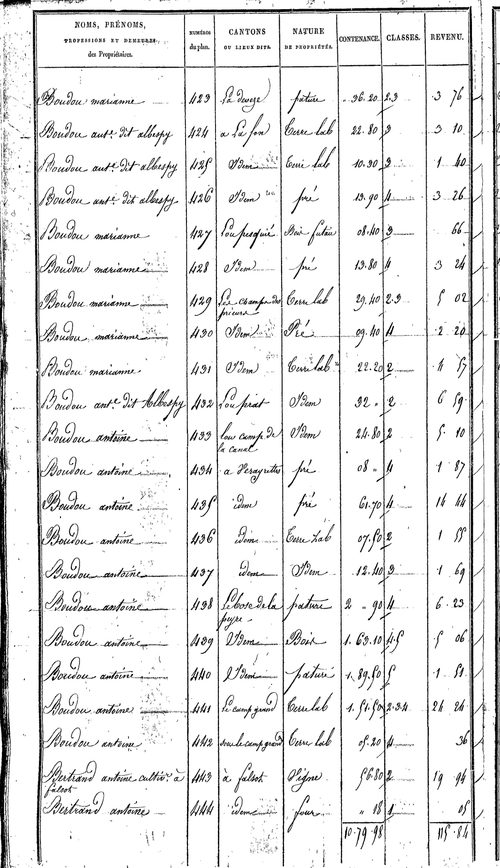 NOMS, PRÉNOMS, PROFESSIONS ET DEMEURES des Propriétaires. NUMÉROS du plan. CANTONS OU LIEUX DITS. NATURE DE PROPRIÉTÉS. CONTENANCE. CLASSES. REVENU.
Boudou marianne 423 La deveze pature 36.20 2.3 3 76
Boudou ant.e dit albespy 424 a La fon Terre lab 22.80 3 3 10
Boudou ant.e dit albespy 425 Idem Terre lab 10.30 3 1 40
Boudou ant.e dit albespy 426 Idem pré 13.90 4 3 26
Boudou marianne 427 Lou pesquié Bois futaie 08.40 3 66
Boudou marianne 428 Idem pré 13.80 4 3 24
Boudou marianne 429 Les champs des prieurs Terre lab 29.40 2.3 5 02
Boudou marianne 430 Idem Pré 09.40 4 2 20
Boudou marianne 431 Idem Terre lab 22.20 2 4 57
Boudou ant.e dit Albespy 432 Lou prat Idem 32 " 2 6 59
Boudou antoine 433 lou camp de la canal Idem 24.80 2 5 10
Boudou antoine 434 a pré 08 " 4 1 87
Boudou antoine 435 idem pré 61.70 4 14 44
Boudou antoine 436 idem Terre Lab 07.50 2 1 55
Boudou antoine 437 idem Idem 12.40 3 1 69
Boudou antoine 438 Le bosc de la peyre pature 2 " 90 4 6 23
Boudou antoine 439 Idem Bois 1.63.10 4.5 5 06
Boudou antoine 440 Idem pature 1.89.50 5 1 51
Boudou antoine 441 le camp grand Terre lab 1.51.50 2.3.4 24 24
Boudou antoine 442 sous le camp grand Terre lab 05.20 4 36
Bertrand antoine cultiv.r à falsot 443 à falsot Vigne 56.80 2 19 94
Bertrand antoine 444 idem four " 18 1 05
10.79.98 115.84